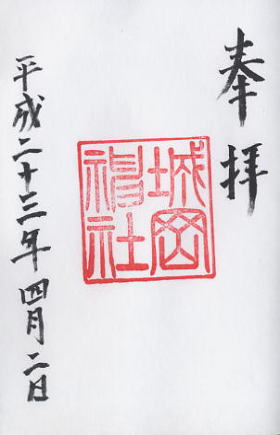 奉拝
城岡
神社
平成二十三年四月二日